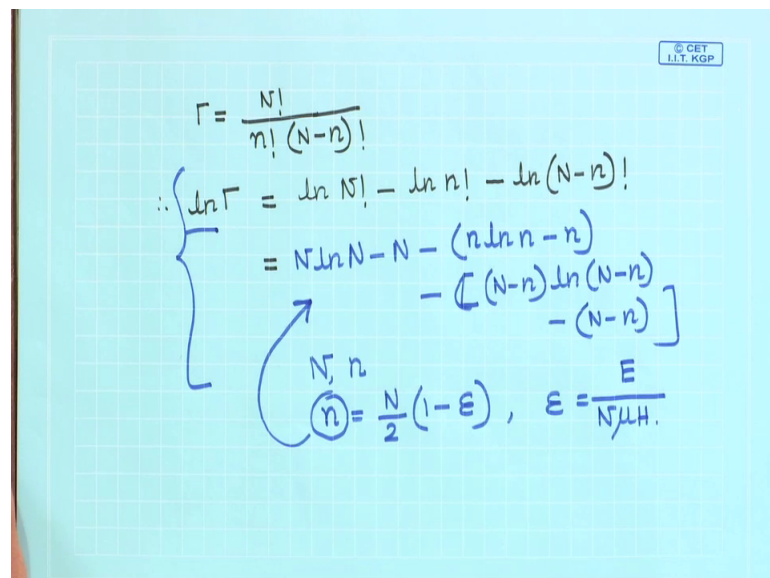 © CET
I.I.T. KGP
Γ = N! / n! (N-n)!
∴ ln Γ = ln N! - ln n! - ln (N-n)!
= N ln N - N - (n ln n - n)
- [(N-n) ln (N-n)
- (N-n)]
N, n
n = N/2 (1-ε), ε = E / NμH.